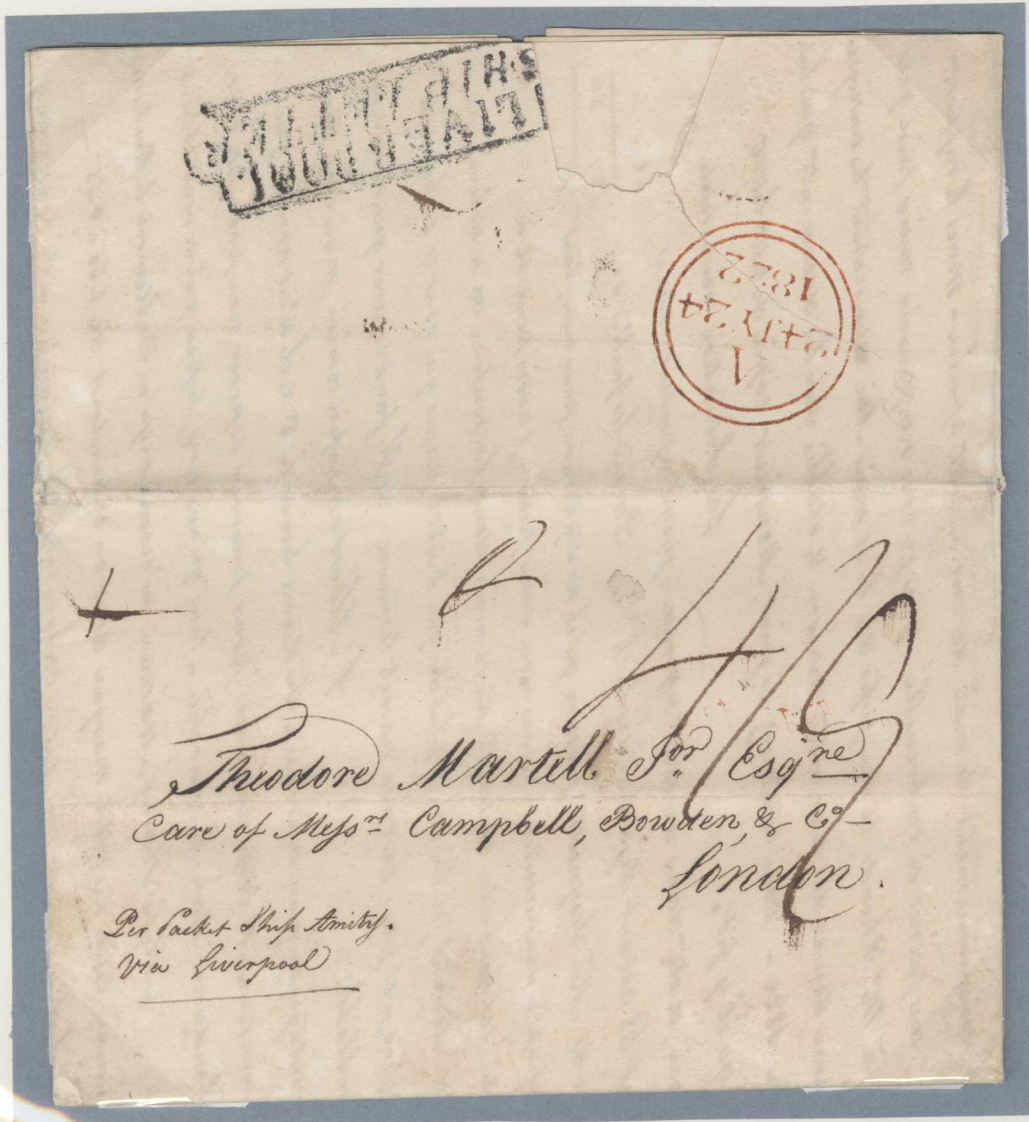 SHIP LETTER
LIVERPOOL
A
24 JY 24
1822
4/9
Theodore Martell Jor. Esqre
Care of Messrs Campbell, Bowden, & Co
London.
Per Packet Ship Amity.
Via Liverpool